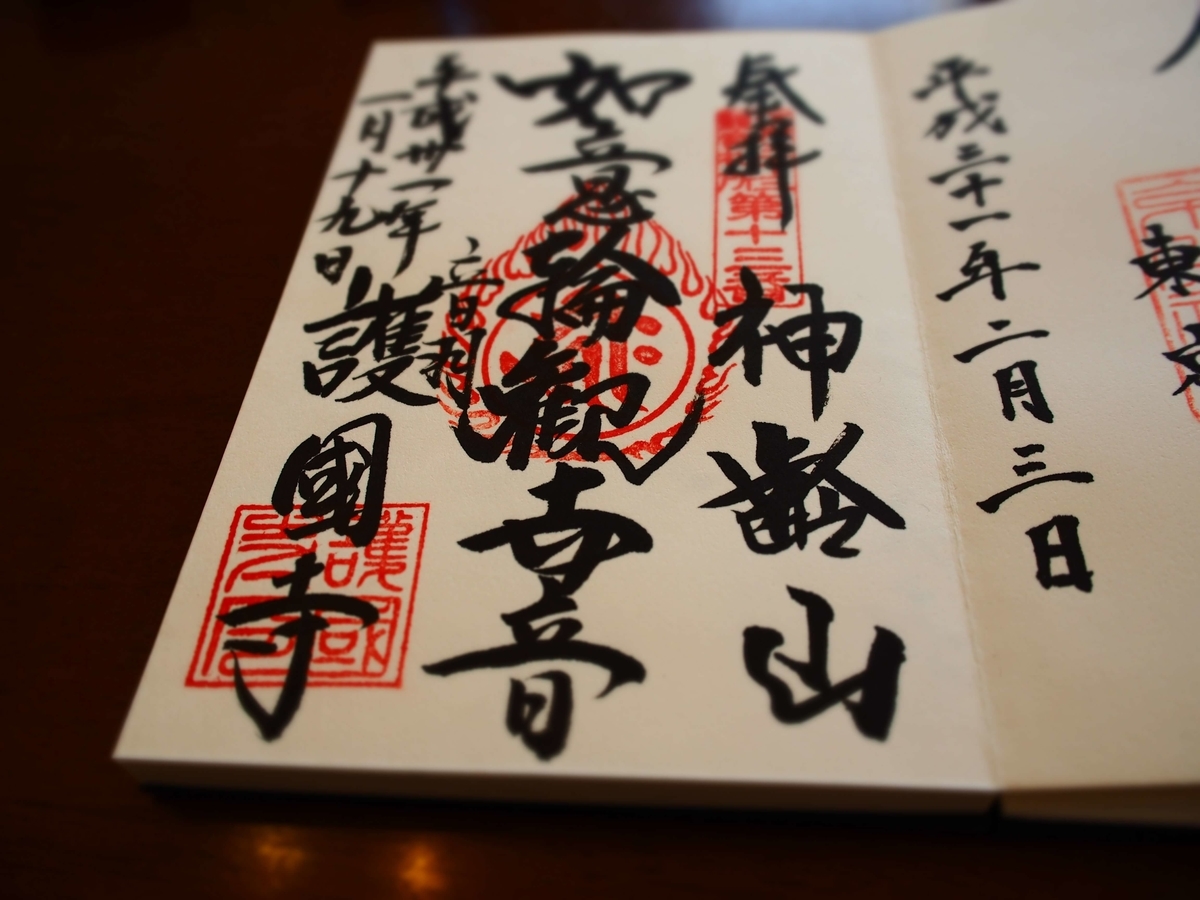 東京
平成三十一年二月三日
奉拝
第十三番
神齢山
如意輪観世音
平成卅一年
一月十九日
音羽
護國寺